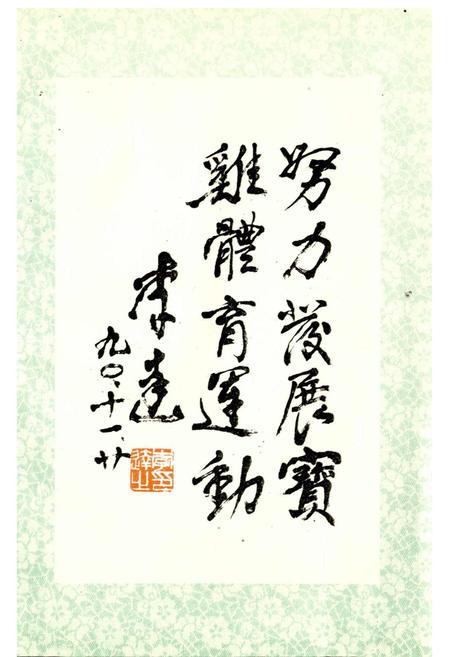 努力发展寳
雞體育運動
李達
九〇.十一.廿